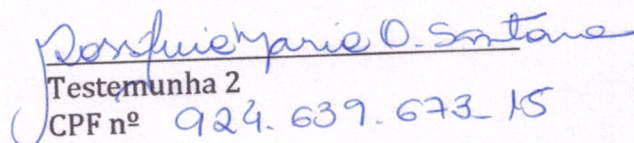 Maria O. Santana
Testemunha 2
CPF nº 924.639.673-15